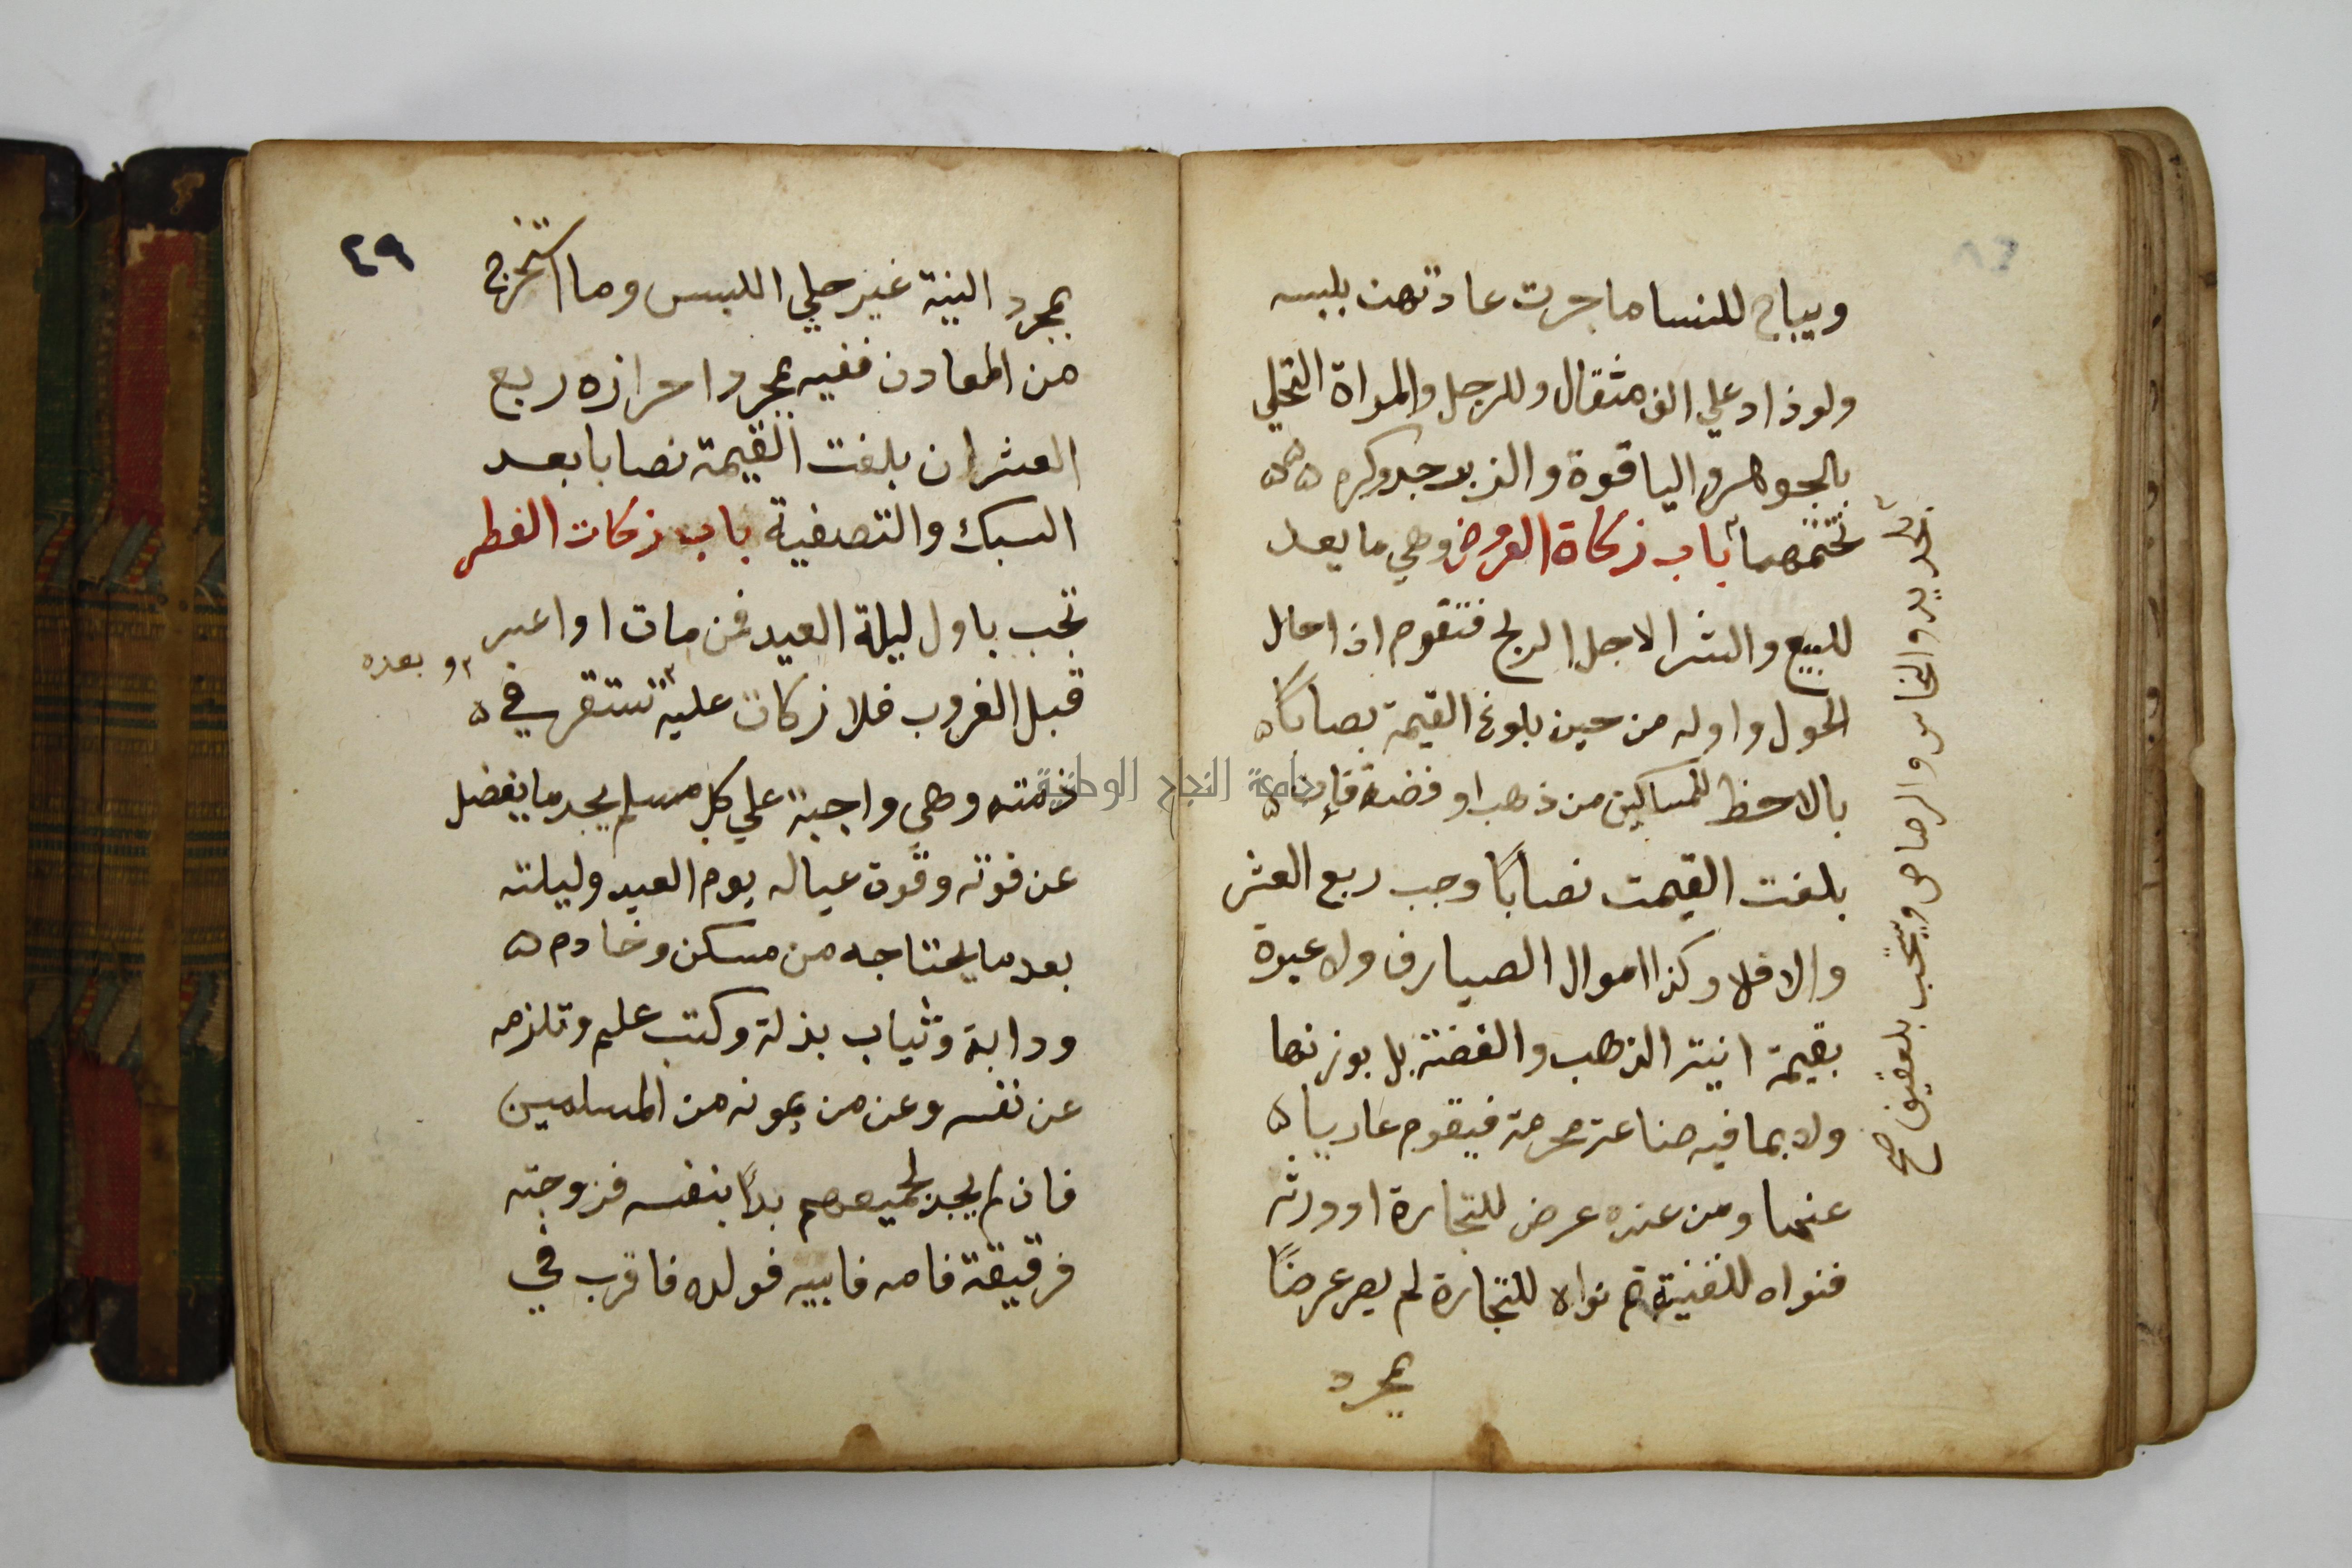 ويباح للنسا ما جرت عادتهن بلبسه
ولو زاد علي الف مثقال وللرجل والمراة التحلي
بالجوهر والياقوة والزبرجد وكره
تختمهما باب زكاة العروض وهي ما يعد
للبيع والشرا لاجل الربح فتقوم اذا حال
الحول واوله من حين بلوغ القيمة نصابًا
بالاحظ للمساكين من ذهب او فضة فإن
بلغت القيمت نصابًا وجب ربع العشر
والا فلا وكذا اموال الصيارف ولا عبرة
بقيمة انية الذهب والفضة بل بوزنها
ولا بما فيه صناعة محرمة فيقوم عاريا
عنها ومن عنده عرض للتجارة او ورثه
فنواه للقنية ثم نواه للتجارة لم يصر عرضًا
بمجرد
بحديد والنحاس والرصاص ويستحب بلعقيق صح
٤٩
بمجرد النية غير حلي اللبس وما استخرج
من المعادن ففيه بمجرد احرازه ربع
العشر ان بلغت القيمة نصابا بعد
السبك والتصفية باب زكات الفطر
تجب باول ليلة العيد فمن مات او اعسر
قبل الغروب فلا زكات عليه تستقر في
و بعده
ذمته وهي واجبة علي كل مسلم يجد ما يفضل
عن قوته وقوت عياله يوم العيد وليلته
بعد ما يحتاجه من مسكن وخادم
ودابة وثياب بذلة وكتب علم وتلزمه
عن نفسه وعن من يمونه من المسلمين
فان لم يجد لجميعهم بدأ بنفسه فزوجته
فرقيقة فامه فابيه فولده فاقرب في
جامعة النجاح الوطنية